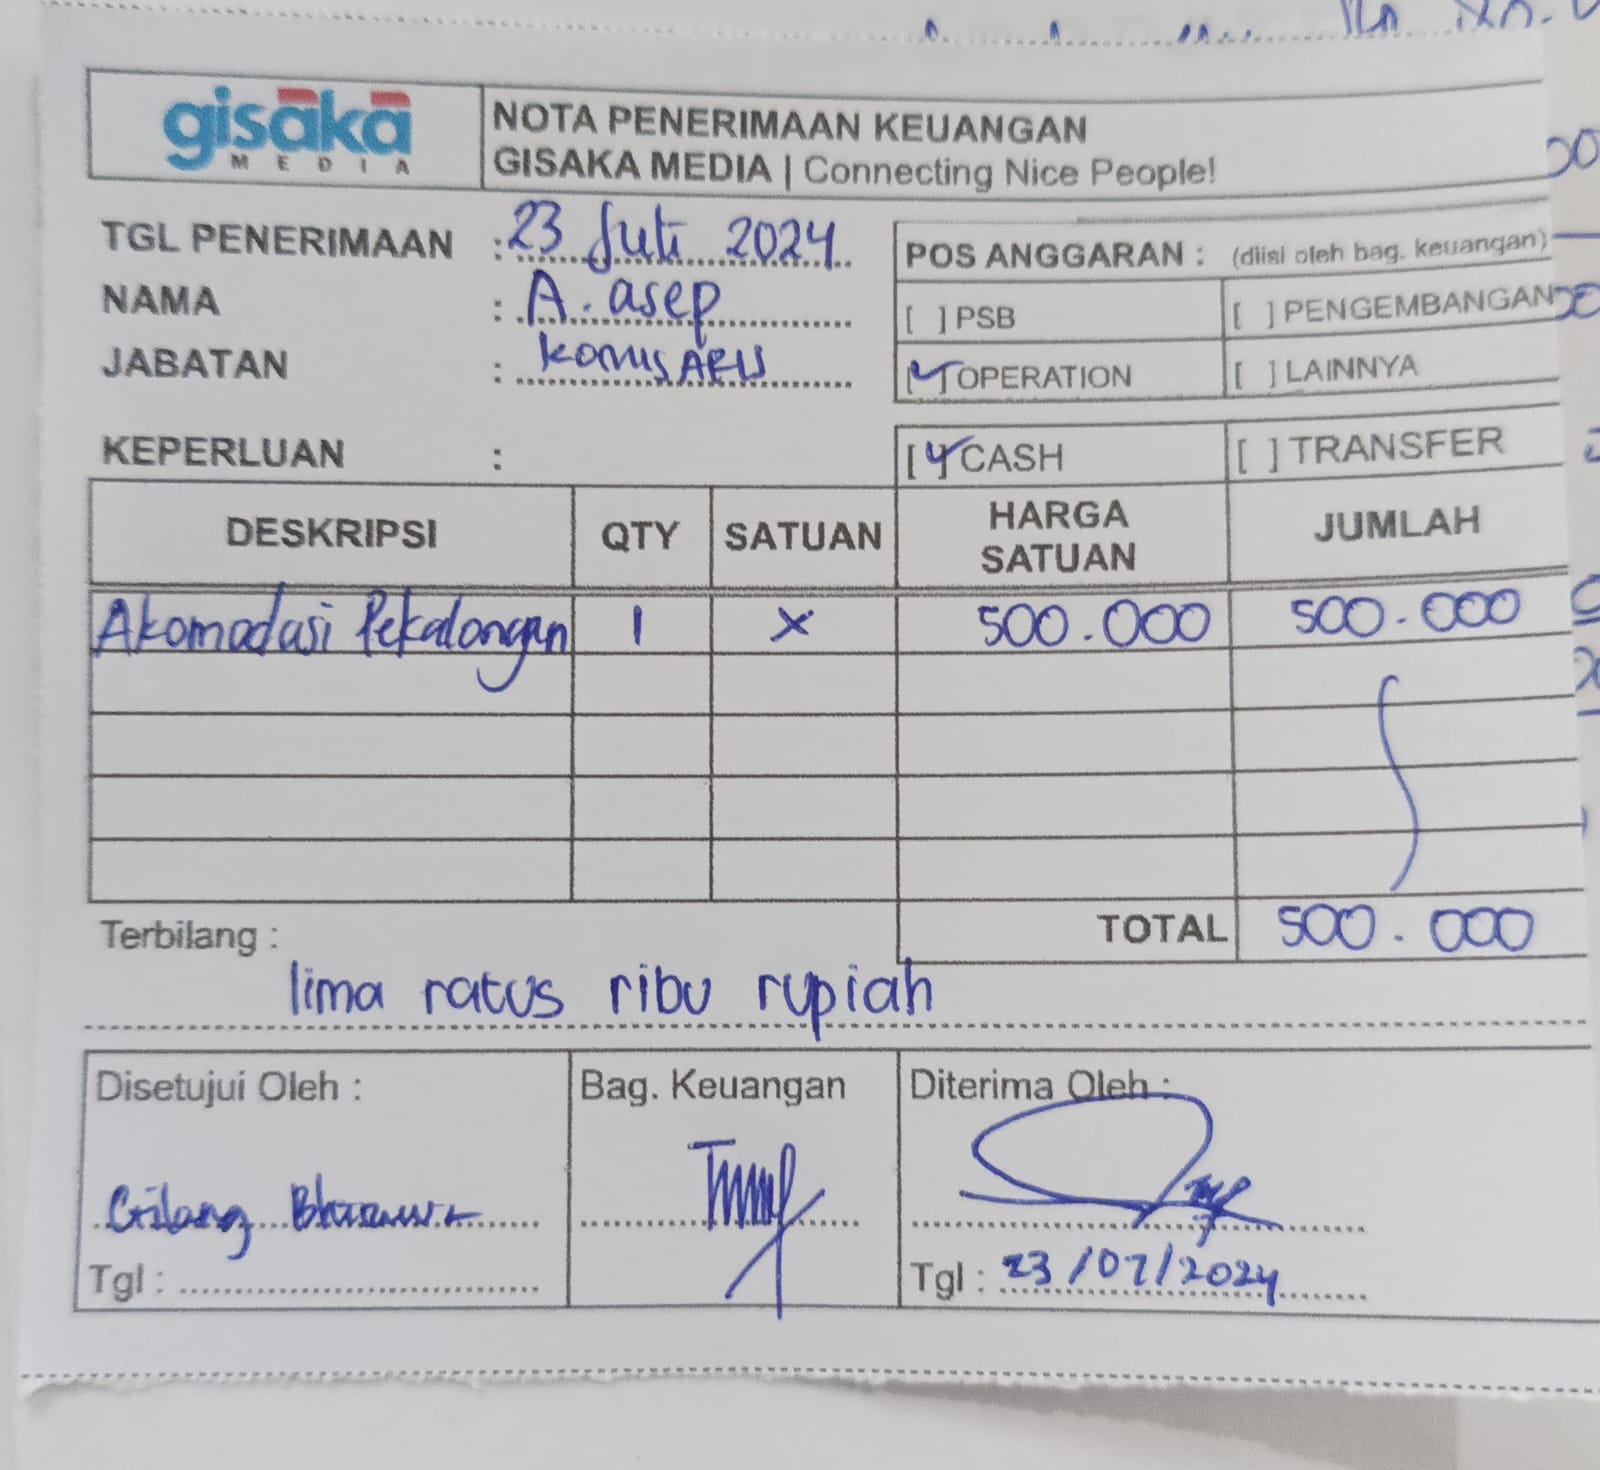 gisaka
MEDIA
NOTA PENERIMAAN KEUANGAN
GISAKA MEDIA | Connecting Nice People!
TGL PENERIMAAN : 23 Juli 2024
NAMA : A. asep
JABATAN : komisARIS
POS ANGGARAN : (diisi oleh bag. keuangan)
[ ] PSB [ ] PENGEMBANGAN
[✓] OPERATION [ ] LAINNYA
KEPERLUAN : [✓] CASH [ ] TRANSFER
DESKRIPSI QTY SATUAN HARGA SATUAN JUMLAH
Akomodasi Pekalongan 1 x 500.000 500.000
TOTAL 500.000
Terbilang :
lima ratus ribu rupiah
Disetujui Oleh : Bag. Keuangan Diterima Oleh :
Gilang
Tgl : Tgl : 23/07/2024